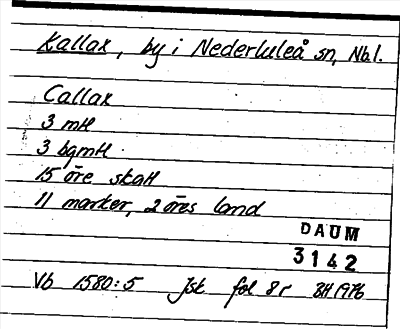 Kallax, by i Nederluleå sn, Nbl.
Callax
3 mtl
3 bgmtl
15 öre skatt
11 marker, 2 öres land
DAUM
3142
Vb 1580:5 Jsk fol 8r BH 1976